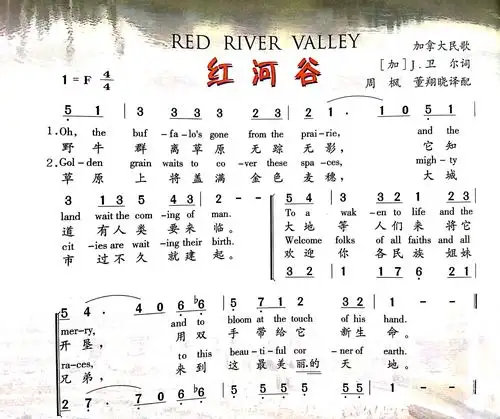 RED RIVER VALLEY
加拿大民歌
红河谷
[加]J.卫 尔词
1=F 4/4
周 枫 董翔晓译配
5 1 3 3 3 3 2 3 2 1. 1 0 5 1
1.Oh, the buf -fa-lo's gone from the prai-rie, and the
野 牛 群 离 草 原 无 踪 无 影, 它 知
2.Gol-den grain waits to co-ver these spa-ces, migh-ty
草 原 上 将 盖 满 金 色 麦 穗, 大 城
3 1 3 5 4 3 2 - - 5 4 3 3 2 1 2 3 5 4
land wait the com-ing of man. To a wak-en to life and the
道 有 人 类 要 来 临。 大 地 等 人 们 来 将 它
cit-ies are wait-ing their birth. Welcome folks of all faiths and all
市 过 不 久 就 建 起。 欢 迎 你 各 民 族 姐 妹
3 2 1 1 7 6 7 1 2 1
5 4. 4 0 6 ♭6 5 7 1 2 3 2 1 - -
mer-ry, and to bloom at the touch of his hand.
开 垦, 用 双 手 带 给 它 新 生 命。
ra-ces, to this beau-ti-ful cor-ner of earth.
兄 弟, 来 到 这 最 美 丽.的 天 地。